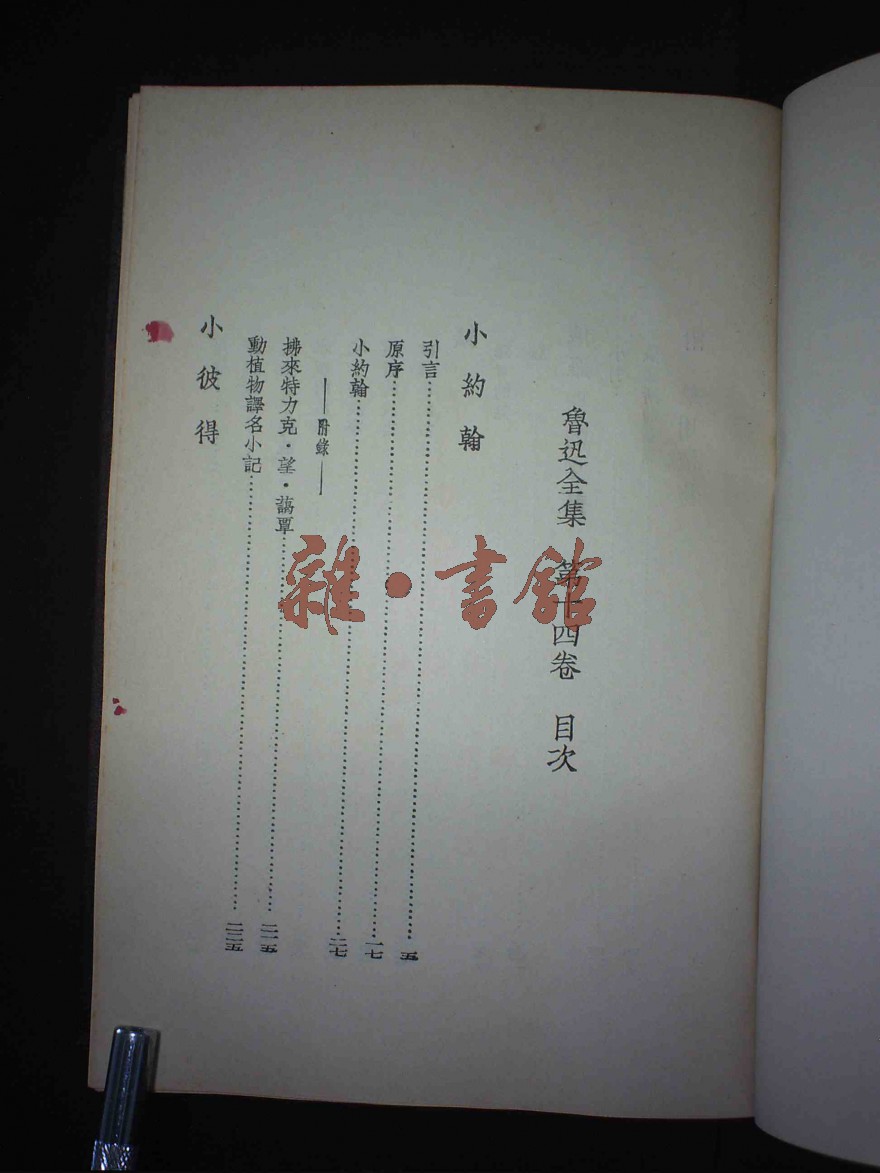 魯迅全集　第十四卷　目次
小約翰
引言……五
原序……一七
小約翰……二七
——附錄——
拂來特力克・望・藹覃……二一五
動植物譯名小記……二二五
小彼得
雜・書館